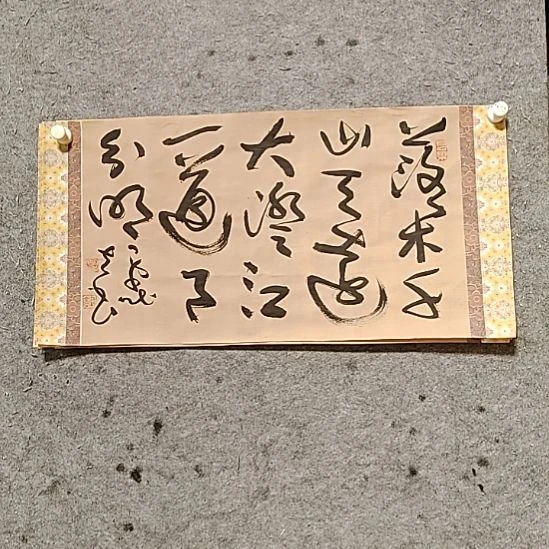 落木千
山天遠
大澄江
一道月
分明